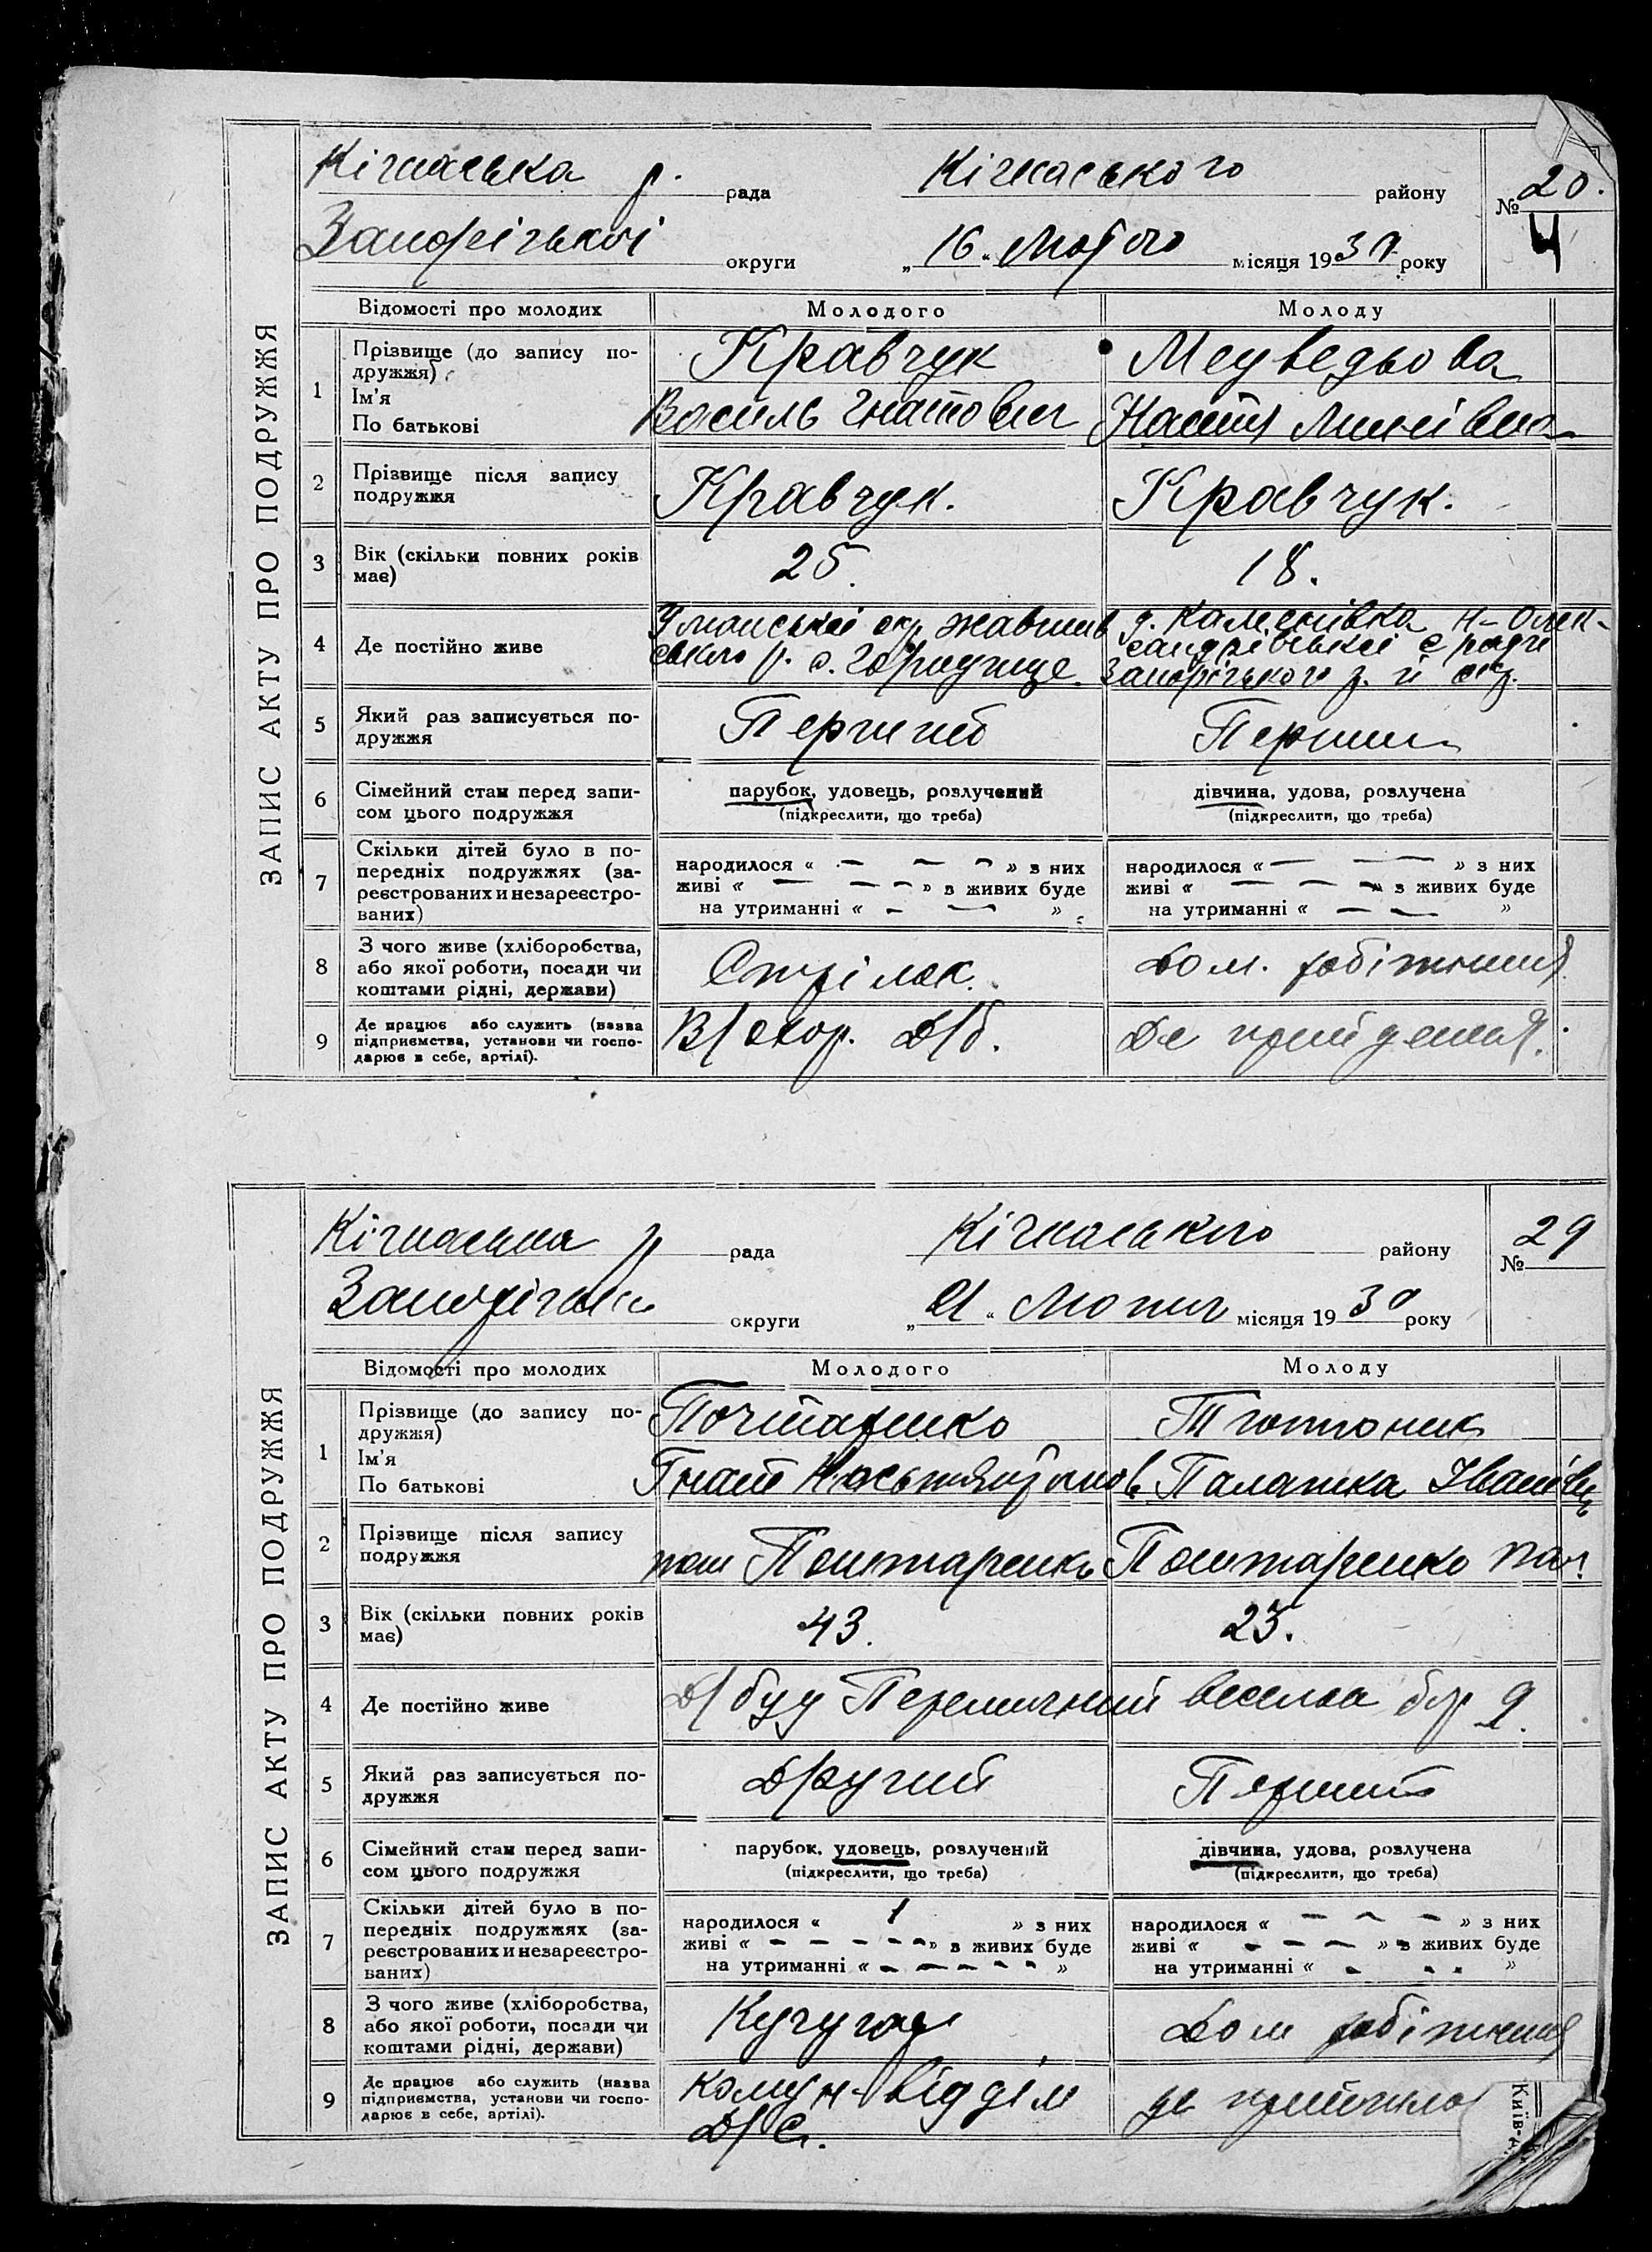 ЗАПИС АКТУ ПРО ПОДРУЖЖЯ
Кічкаська р. рада Кічкаського району № 20.
Запорізької округи „16“ Лютого місяця 1930 року
4
Відомості про молодих Молодого Молоду
1 Прізвище (до запису по-
дружжя) Кравчук Медведьова
Ім'я
По батькові Василь Гнатович Настя
2 Прізвище після запису
подружжя Кравчук. Кравчук.
3 Вік (скільки повних років
має) 25. 18.
4 Де постійно живе Уманської окр. Жашків
ського р. с. Городище.
Запорізького р. й окр.
5 Який раз записується по-
дружжя Перший Перший
6 Сімейний стан перед запи-
сом цього подружжя
парубок, удовець, розлучений дівчина, удова, розлучена
(підкреслити, що треба) (підкреслити, що треба)
7 Скільки дітей було в по-
передніх подружжях (за-
реєстрованих и незареєстро-
ваних)
народилося « — — — » з них народилося « — — » з них
живі « — — — » з живих буде живі « — — — » з живих буде
на утриманні « — — » на утриманні « — — »
8 З чого живе (хліборобства,
або якої роботи, посади чи
коштами рідні, держави) Стрілок. Дом. робітниця
9 Де працює або служить (назва
підприємства, установи чи госпо-
дарює в себе, артілі). В/охор. Д/б. Де прийдеться.
ЗАПИС АКТУ ПРО ПОДРУЖЖЯ
Кічкаська р рада Кічкаського району № 29
Запорізької округи „21“ місяця 1930 року
Відомості про молодих Молодого Молоду
1 Прізвище (до запису по-
дружжя) Поштаренко Тютюник
Ім'я
По батькові Гнат Палажка Іванівн
2 Прізвище після запису
подружжя Поштаренко Поштаренко
3 Вік (скільки повних років
має) 43. 23.
4 Де постійно живе Д/буд весела бар 9.
5 Який раз записується по-
дружжя Другий Перший
6 Сімейний стан перед запи-
сом цього подружжя
парубок, удовець, розлучений дівчина, удова, розлучена
(підкреслити, що треба) (підкреслити, що треба)
7 Скільки дітей було в по-
передніх подружжях (за-
реєстрованих и незареєстро-
ваних)
народилося « 1 » з них народилося « — — — » з них
живі « — — — — — » з живих буде живі « — — — » з живих буде
на утриманні « — — — — — » на утриманні « — — — »
8 З чого живе (хліборобства,
або якої роботи, посади чи
коштами рідні, держави) Дом робітниця
9 Де працює або служить (назва
підприємства, установи чи госпо-
дарює в себе, артілі). Комун-відділ
Д/С.
Київ-